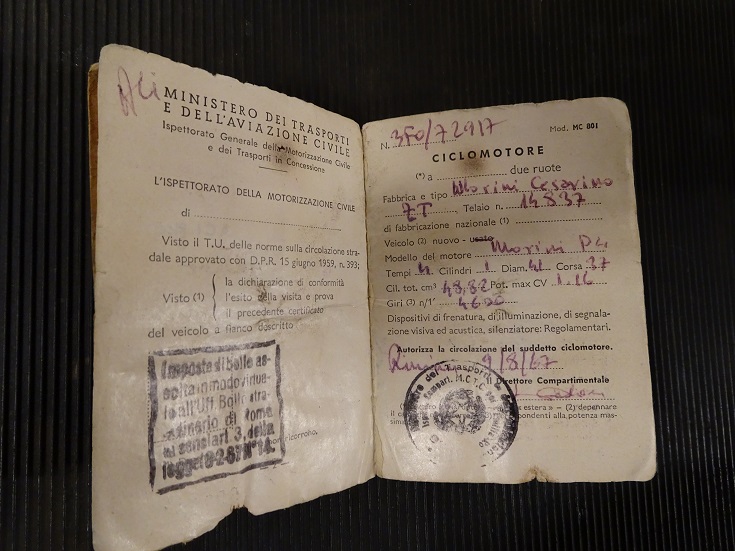 MINISTERO DEI TRASPORTI
E DELL'AVIAZIONE CIVILE
Ispettorato Generale della Motorizzazione Civile
e dei Trasporti in Concessione
L'ISPETTORATO DELLA MOTORIZZAZIONE CIVILE
di
Visto il T.U. delle norme sulla circolazione stra-
dale approvato con D.P.R. 15 giugno 1959, n. 393;
Visto (1)
la dichiarazione di conformità
l'esito della visita e prova
il precedente certificato
del veicolo a fianco descritto
Imposta di bollo as-
solta in modo virtua-
le all'Uff. Bollo stra-
ordinario di Roma
ai sensi art 3, della
legge
N. 3F0/72917 Mod. MC 801
CICLOMOTORE
(*) a due ruote
Fabbrica e tipo Morini Corsarino
ZT, Telaio n. 14837
di fabbricazione nazionale (1)
Veicolo (2) nuovo - usato
Modello del motore Morini
Tempi 4 Cilindri 1 Diam. 41 Corsa 37
Cil. tot. cm³ 48,82 Pot. max CV 1.16
Giri (3) n/1' 4600
Dispositivi di frenatura, di illuminazione, di segnala-
zione visiva ed acustica, silenziatore: Regolamentari.
Autorizza la circolazione del suddetto ciclomotore.
9/8/67
Il Direttore Compartimentale
estera» - (2) depennare
pondenti alla potenza mas-